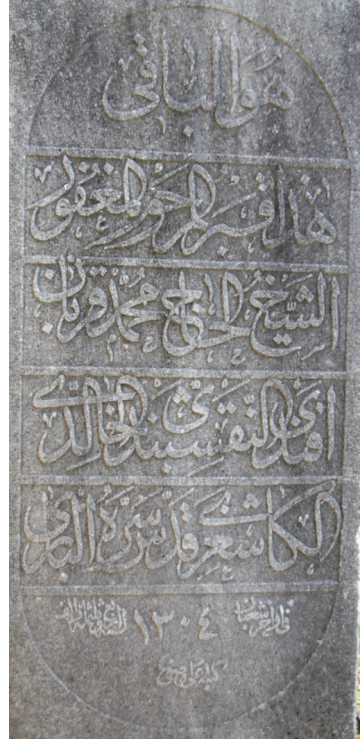 هو الباقي
هذا قبر المرحوم المغفور
الشيخ الحاج محمد قربان
افندى النقشبندى الخالدى
الكاشغرى قدس سره البارى
١٣٠٤